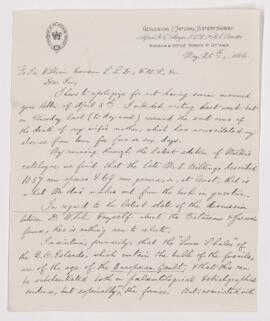 GEOLOGICAL & NATURAL HISTORY SURVEY
MUSEUM & OFFICE SUSSEX ST OTTAWA
May 25th, 188
To Sir William Dawson L.L.D.,
Dear Sir,
I have to apologize for not having sooner answered
your letter of April 8th. I intended writing last week but
on Thursday last (to day week) received the sad news of
the death of my wife's mother, which has necessitated my
absence from town for five or six days.
By running through the latest edition of Miller's
catalogue, we find that the late Mr. E. Billings described
1057 new species & 61 new genera, or at least, that is
what Mr. Ami makes out from the book in question.
In regard to the latest state of the discussion
between Dr White & myself about the Cretaceous of
forms, there is nothing new to relate.
I maintain primarily, that the "Lower Shales" of
the Q. C. Islands, which contain the bulk of the fossils,
are of the age of the European Gault, & that this can
be substantiated both on palaeontological & stratigraphical
evidence, but especially the former. But, associated with